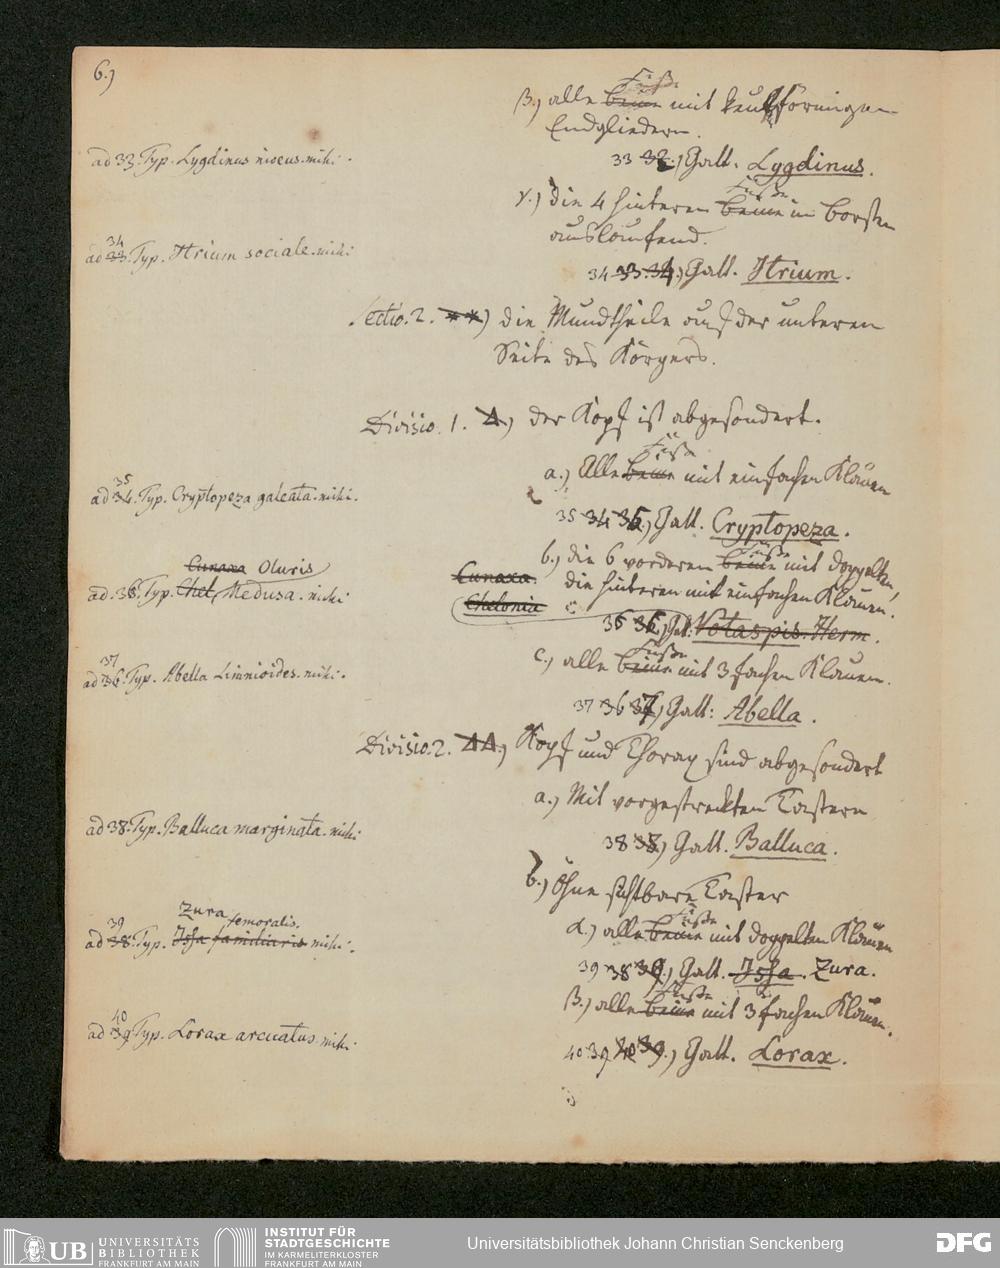 6.)
β.) alle Füße beine mit keulförmigen
Endgliedern.
ad 33. Typ. Lygdinus niveus. mihi.
33 32.) Gatt. Lygdinus.
γ.) die 4 hinteren Füße beine in Borsten
auslaufend.
ad 34 33. Typ. Itrium sociale. mihi
34 33. 34.) Gatt. Itrium.
Sectio. 2. **) die Mundtheile auf der unteren
Seite des Körpers.
Divisio. 1. Δ) der Kopf ist abgesondert.
a.) Alle Füße beine mit einfachen Klauen
ad 35 34. Typ. Cryptopeza galeata. mihi.
35 34 35.) Gatt. Cryptopeza.
b.) die 6 vorderen Füße beine mit doppelten
Cunaxa Oluris
Cunaxa.
die hinteren mit einfachen Klauen.
ad. 36. Typ. Chel. Medusa. mihi
Chelonia
36 36.) Gatt. Notaspis. Herm.
c.) alle Füße beine mit 3fachen Klauen.
ad 37 36. Typ. Abella Limnioides. mihi.
37 36 37.) Gatt: Abella.
Divisio. 2. ΔΔ.) Kopf und Thorax sind abgesondert
a.) Mit vorgestreckten Tastern
ad 38. Typ. Balluca marginata. mihi
38 38.) Gatt. Balluca.
b.) Ohne sichtbare Taster
Zura femoralis.
α.) alle Füße beine mit doppelten Klauen
ad 39 38. Typ. familiaris mihi.
39 38 39.) Gatt. Zura.
β.) alle Füße beine mit 3fachen Klauen.
ad 40 39 Typ. Lorax arcuatus. mihi.
40 39 40 39.) Gatt. Lorax.
UB UNIVERSITÄTS BIBLIOTHEK FRANKFURT AM MAIN
INSTITUT FÜR STADTGESCHICHTE IM KARMELITERKLOSTER FRANKFURT AM MAIN
Universitätsbibliothek Johann Christian Senckenberg
DFG